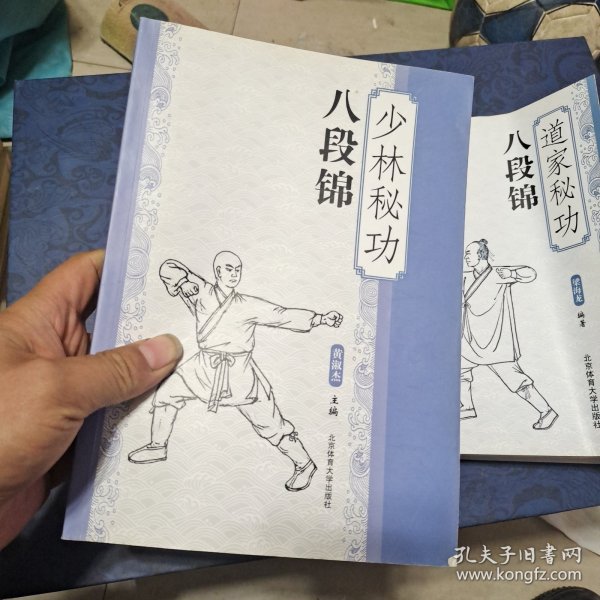 少林秘功
八段锦
黄淑杰 主编
北京体育大学出版社
道家秘功
八段锦
梁海龙 编著
北京体育大学出版社
孔夫子旧书网
www.kongfz.com